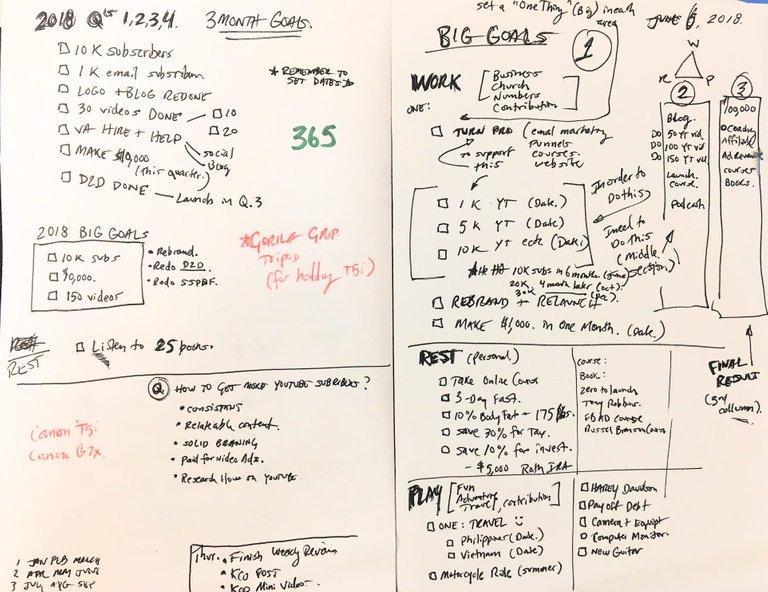 2018 Q's 1,2,3,4. 3 MONTH GOALS.
10K subscribers
1K email
LOGO + BLOG REDONE
30 videos DONE
10
20
VA HIRE + HELP
social
Blog
MAKE $10,000
(this quarter.)
D2D DONE
Launch in Q.3
* REMEMBER TO
SET DATES *
365
2018 BIG GOALS
10K subs
150 videos
• Rebrand.
• Redo D2D
• Redo
*GORILA GRIP
Tripod
(for holding T5i)
REST
Listen to 25 books.
Q HOW TO GET MORE YOUTUBE SUBSCRIBERS?
• CONSISTENT
• Relateable content.
• SOLID BRANDING
• Paid for Video Ads.
• Research How on YouTube
Canon T5i
Canon G7x
1 JAN FEB MARCH
2 APR MAY JUNE
3 JULY AUG SEP
Thur. • Finish Weekly Review
• KCO POST
• KCO Mini Video
set a "One Thing" (Big) in each
area
JUNE 6, 2018.
BIG GOALS
1
WORK
Business
Church
Numbers
Contribution
ONE:
TURN PRO (email marketing
Funnels
courses.
website
to support
this
1K YT (Date.)
5K YT (Date)
10K YT (Date)
In order to
Do this
I need to
Do This
(middle
section)
10K subs in 6 months (June)
20K
30K 4 month later (Oct).
(Dec).
REBRAND + RELAUNCH
MAKE $1,000. in One Month. (Date.)
W
R P
2
Blog.
DO 50 YT vid.
DO 100 YT vid.
DO 150 YT vid.
Launch
course.
Podcast
3
100,000
Affiliate
Ad Revenue
courses
Books.
FINAL
RESULT
(3rd
column)
REST (personal)
Take Online Course
3-Day Fast.
10% Body Fat + 175 lbs.
Save 30% for Tax.
Save 10% for invest.
- $5,000 Roth IRA
course:
Book:
Zero to Launch
Tony Robbins.
FB AD course
Russel Brunson
PLAY
Fun
Adventure
Travel, contribution
ONE: TRAVEL
Philippines (Date.)
Vietnam (Date)
Motorcycle Ride (summer)
HARLEY Davidson
Pay off Debt
Camera + Equipt
Computer Monitor.
New Guitar